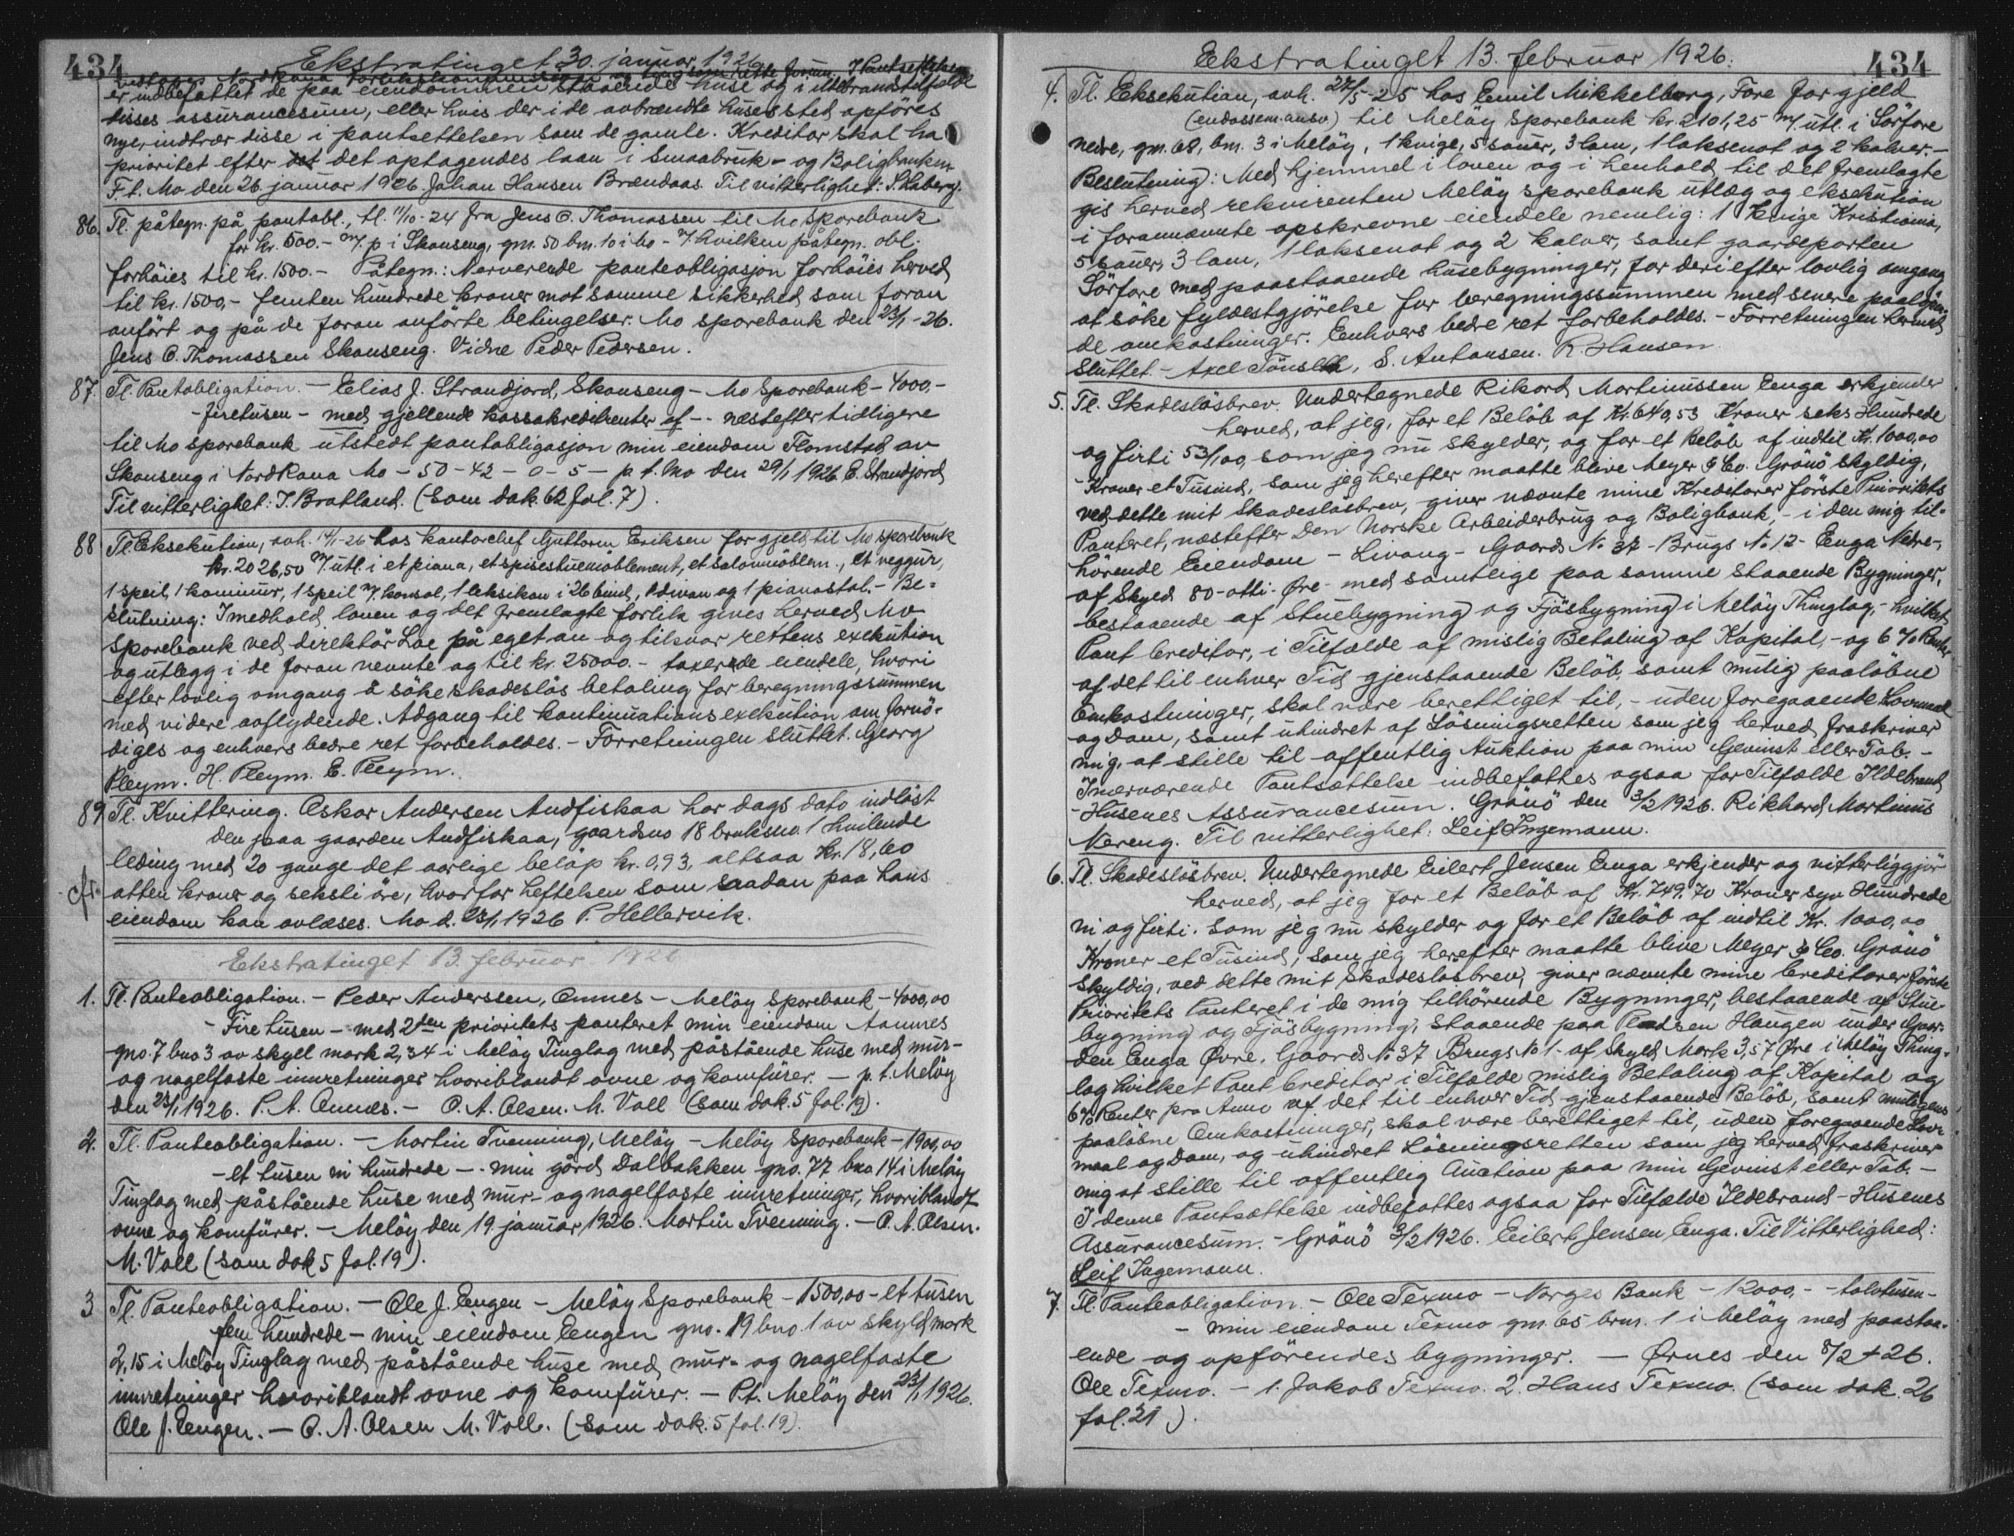 434
Ekstratinget 30. januar 1926
vedtages Nordrana forlikskommission og ting som rette forum. I Pantsettelsen
er indbefattet de paa eiendommen staaende huse og i ildebrandstilfælde
disses assurancesum, eller hvis der i de avbrændte huses sted opføres
nye, indtrær disse i pantsettelsen som de gamle. Kreditor skal ha
prioritet efter det optagendes laan i Smaabruk- og Boligbanken
F.t. Mo den 26 januar 1926 Johan Hansen Brendaas. Til vitterlighet: S. Haberg.
86. Tl. påtegn. på pantobl., tl. 11/10-24 fra Jens C. Thomassen til Mo Sparebank
for kr. 500.- m/ p i Skonseng, gm. 50 bm. 10 i Mo - v/ hvilken påtegn. obl.
forhøies til kr. 1500.- Påtegn.: Nærværende panteobligasjon forhøies herved
til kr. 1500,- femten hundrede kroner mot samme sikkerhed som foran
anført og på de foran anførte betingelser. Mo sparebank den 23/1-26.
Jens C. Thomassen Skonseng. Vidne Peder Pedersen.
87. Tl. Pantobligation. - Elias J. Strandjord, Skonseng - Mo Sparebank - 4000,-
- firetusen - med gjellende kassakreditrenter af - - næstefter tidligere
til Mo sparebank utstedt pantobligasjon min eiendom Flomstad av
Skonseng i Nordrana Mo - 50 - 42 - 0 - 5 - p.t. Mo den 29/1 1926 E. Strandjord
Til vitterlighet: J. Bratland. (Som dok. 62 fol. 7).
88 Tl. Eksekution, avh. 14/1-26 hos kontorchef Guttorm Eriksen for gjeld til Mo sparebank
kr. 2026,50 m/ utl. i et piano, et spisestuemøblement, et salonmøblem., et veggur,
1 speil, 1 kommur, 1 speil m/ konsol, 1 leksikon i 26 bind, 1 divan og 1 pianostol. - Be-
slutning: I medhold loven og det fremlagte forlik gives herved Mo
Sparebank ved direktør Loe på eget an og tilsvar rettens exekution
og utlegg i de foran nevnte og til kr. 25000.- taxerede eiendele, hvori
efter lovlig omgang å søke skadesløs betaling for beregningssummen
med videre avflydende. Adgang til kontinuationsexekution om fornø-
diges og enhvers bedre ret forbeholdes. - Forretningen sluttet. Georg
Pleym. H. Pleym. E. Pleym.
89 Tl. Kvittering. Oskar Andersen Andfiskaa har dags dato indløst
den paa gaarden Andfiskaa, gaardsno 18 bruksno. 1 hvilende
leding med 20 gange det aarlige beløp kr. 0,93, altsaa Kr. 18,60
cfr. atten kroner og seksti øre, hvorfor heftelsen som saadan paa hans
eiendom kan avlæses. Mo d. 25/1 1926 P. Hellervik.
Ekstratinget 13. februar 1926
1. Tl. Panteobligation. - Peder Anderssen, Onnes - Meløy Sparebank - 4000,00
- Fire tusen - med 2den prioritets panteret min eiendom Aamnes
gno. 7 bno 3 av skyld mark 2,34 i Meløy Tinglag med påstående huse med mur-
og nagelfaste innretninger hvoriblandt ovne og komfürer. - p.t. Meløy
den 23/1 1926. P. A. Onnes. - O. A. Olsen. M. Voll (som dok. 5 fol. 19).
2. Tl. Panteobligation. - Martin Tvenning, Meløy - Meløy Sparebank - 1900,00
- et tusen ni hundrede - - min gård Dalbakken gno. 77 bno 14 i Meløy
Tinglag med påstående huse med mur- og nagelfaste innretninger, hvoriblandt
ovne og komfürer. - Meløy den 19 januar 1926. Martin Tvenning. - O. A. Olsen.
M. Voll (som dok 5 fol. 19).
3 Tl. Panteobligation. - Ole J. Engen - Meløy Sparebank - 1500,00 - et tusen
fem hundrede - min eiendom Engen gno. 19 bno. 1 av skyld mark
2,15 i Meløy Tinglag med påstående huse med mur- og nagelfaste
innretninger hvoriblandt ovne og komfürer. - P.t. Meløy den 23/1 1926.
Ole J. Engen. - O. A. Olsen M. Voll. (Som dok. 5 fol. 19).
Ekstratinget 13. februar 1926.
434
4. Tl. Eksekution, avh. 27/5-25 hos Emil Mikkelborg, Fore for gjeld
(endossem. ansv) til Meløy Sparebank kr. 2101,25 m/ utl. i Sørfore
nedre, gm. 68, bm. 3 i Meløy, 1 kvige, 5 sauer, 3 lam, 1 laksenot og 2 kalver. -
Beslutning: Med hjemmel i loven og i henhold til det fremlagte
gis herved rekvirenten Meløy sparebank utlæg og eksekution
i forannævnte opskrevne eiendele nemlig: 1 kvige Kristiania,
5 sauer, 3 lam, 1 laksenot og 2 kalver, samt gaardeparten
Sørfore med paastaaende husebygninger, for deri efter lovlig omgang
at søke fyldestgjørelse for beregningssummen med senere paaløpen-
de omkostninger. Enhvers bedre ret forbeholdes. - Forretningen hermed
Sluttet - Axel Tønsll, S. Antonsen. R. Hansen.
5. Tl. Skadesløsbrev. Undertegnede Rikard Martinussen Enga erkjender
herved, at jeg, for et Beløb af Kr. 640,53 Kroner seks Hundrede
og firti 53/100, som jeg nu skylder, og for et Beløb af indtil Kr. 1000,00
Kroner et Tusind, som jeg herefter maatte blive Meyer & Co. Grønø skyldig,
ved dette mit Skadesløsbrev, giver nævnte mine Kreditorer første Prioritets
Panteret, næstefter Den Norske Arbeiderbrug og Boligbank, - i den mig til-
hørende Eiendom - Livang - Gaards No 37 - Brugs No 12 - Enga Nedre-,
af Skyld 80 - otti - Øre - med samtlige paa samme staaende Bygninger,
bestaaende af Stuebygning og Fjøsbygning i Meløy Thinglag, - hvilket
Pant Creditor, i Tilfælde af mislig Betaling af Kapital, - og 6 % Renter
af det til enhver Tid gjenstaaende Beløb, samt mulig paaløbne
Omkostninger, skal være berettiget til, - uden foregaaende Lovmaal
og Dom, samt uhindret af Løsningsretten som jeg herved fraskriver
mig, at stille til offentlig Auktion paa min Gevinst eller Tab. -
I nærværende Pantsættelse indbefattes ogsaa for Tilfælde Ildebrand
- Husenes Assurancesum. Grønø den 3/2 1926. Rikhard Martinus
Nereng. Til vitterlighet: Leif Ingemann.
6. Tl. Skadesløsbrev. Undertegnede Eilert Jensen Enga erkjender og vitterliggjør
herved, at jeg for et Beløb af Kr. 749.70 Kroner syv Hundrede
ni og firti. Som jeg nu skylder og for et Beløb af indtil Kr. 1000,00
Kroner et Tusind, som jeg herefter maatte blive Meyer & Co. Grønø
Skyldig, ved dette mit Skadesløsbrev, giver nævnte mine Creditorer første
Prioritets Panteret i de mig tilhørende Bygninger, bestaaende af Stue-
bygning og Fjøsbygning, staaende paa Pladsen Haugen under Gaar-
den Enga Øvre, Gaards No 37 Brugs No 1- af skyld Mark 3,57 Øre i Meløy Thing-
lag hvilket Pant Creditor i Tilfælde mislig Betaling af Kapital og
6 % Renter pro Anno af det til enhver Tid gjenstaaende Beløb, samt muligens
paaløbne Omkostninger, skal være berettiget til, uden foregaaende Lov-
maal og Dom, og uhindret Løsningsretten som jeg herved fraskriver
mig at stille til offentlig Auction paa min Gevinst eller Tab. -
I denne Pantsættelse indbefattes ogsaa for Tilfælde Ildebrand - Husenes
Assurancesum. - Grønø 3/2 1926. Eilert Jensen Enga. Til Vitterlighed:
Leif Ingemann.
7. Tl. Panteobligation. - Ole Texmo - Norges Bank - 12000,- - tolvtusen -
- min eiendom Texmo gm. 65 brm. 1 i Meløy med paastaa-
ende og opførendes bygninger. - Ørnes den 8/2 - 26.
Ole Texmo. - 1. Jakob Texmo. 2. Hans Texmo. (Som dok. 26
fol. 21).